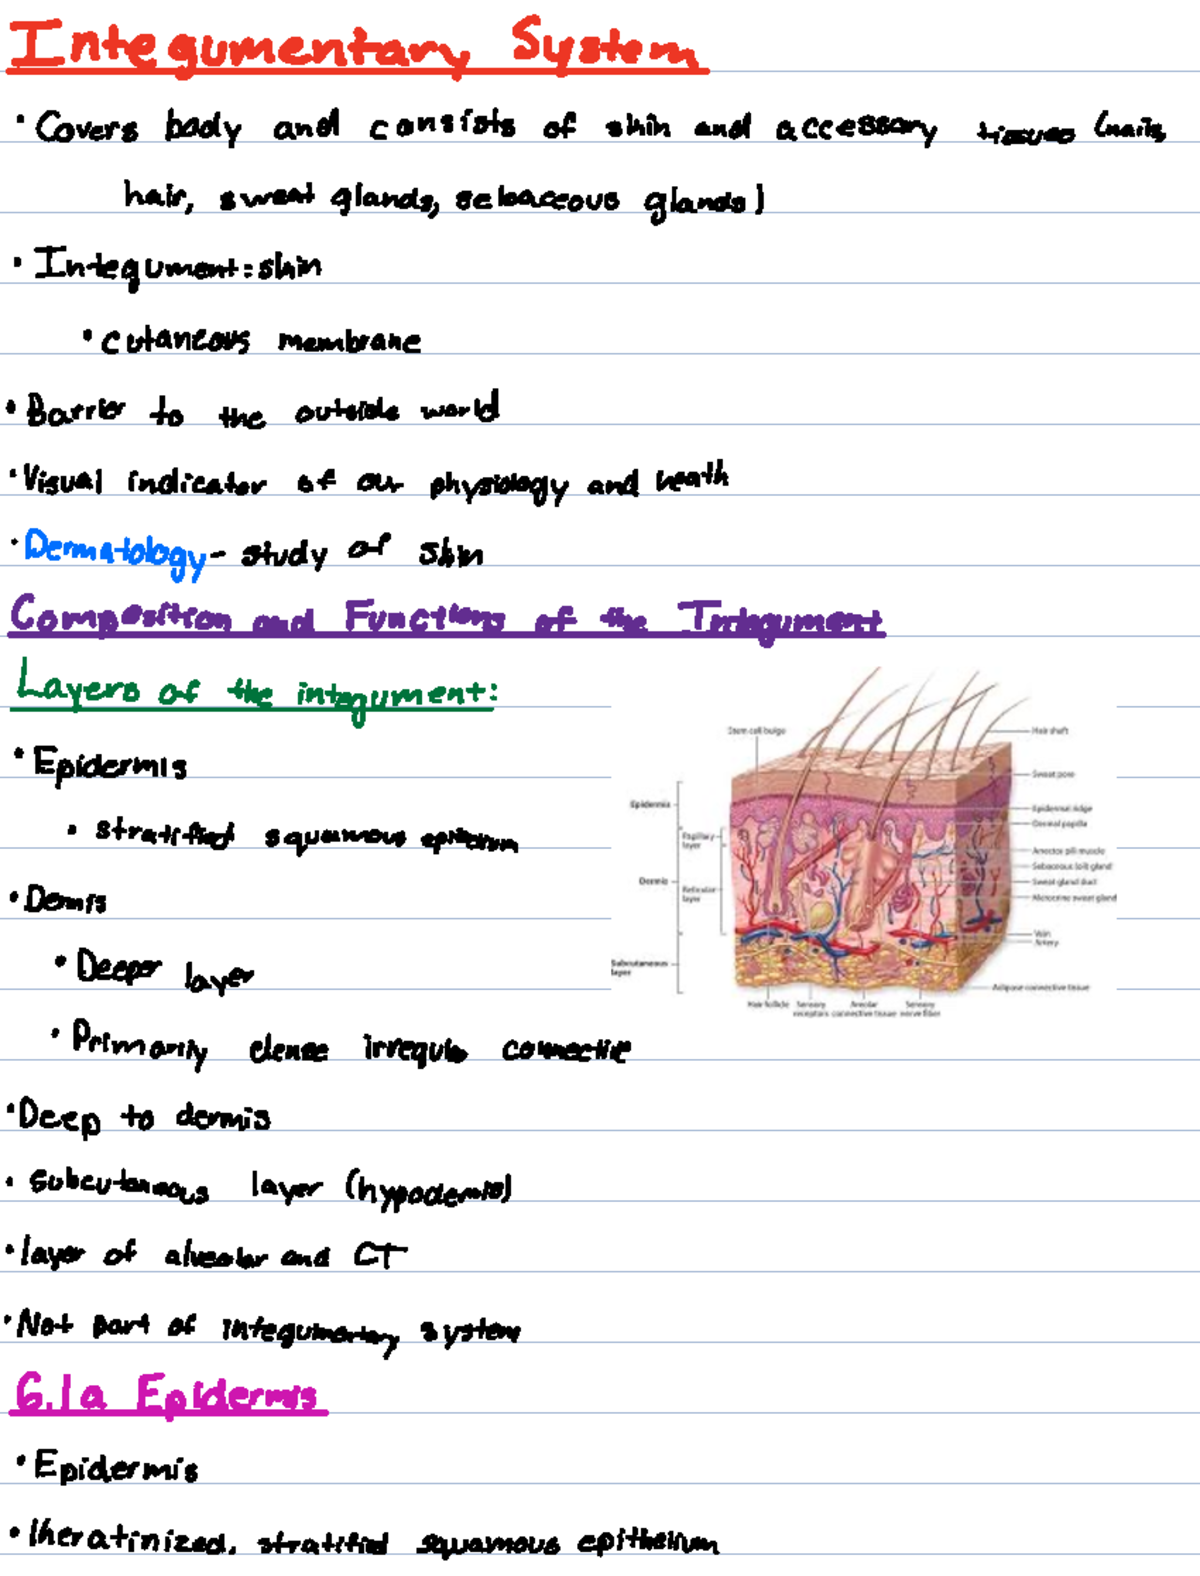 Integumentary System
• Covers body and consists of skin and accessory tissues (nails,
hair, sweat glands, sebaceous glands)
• Integument: skin
• cutaneous membrane
• Barrier to the outside world
• Visual indicator of our physiology and health
• Dermatology - study of skin
Composition and Functions of the Integument
Layers of the integument:
• Epidermis
• stratified squamous epithelium
• Dermis
• Deeper layer
• Primarily dense irregular connective
• Deep to dermis
• Subcutaneous layer (hypodermis)
• layer of alveolar and CT
• Not part of integumentary system
Stem cell bulge
Hair shaft
Sweat pore
Epidermis
Epidermal ridge
Dermal papilla
Papillary
layer
Arrector pili muscle
Sebaceous (oil) gland
Dermis
Sweat gland duct
Reticular
layer
Merocrine sweat gland
Vein
Artery
Subcutaneous
layer
Adipose connective tissue
Hair follicle
Sensory
receptors
Areolar
connective tissue
Sensory
nerve fiber
6.1a Epidermis
• Epidermis
• Keratinized, stratified squamous epithelium